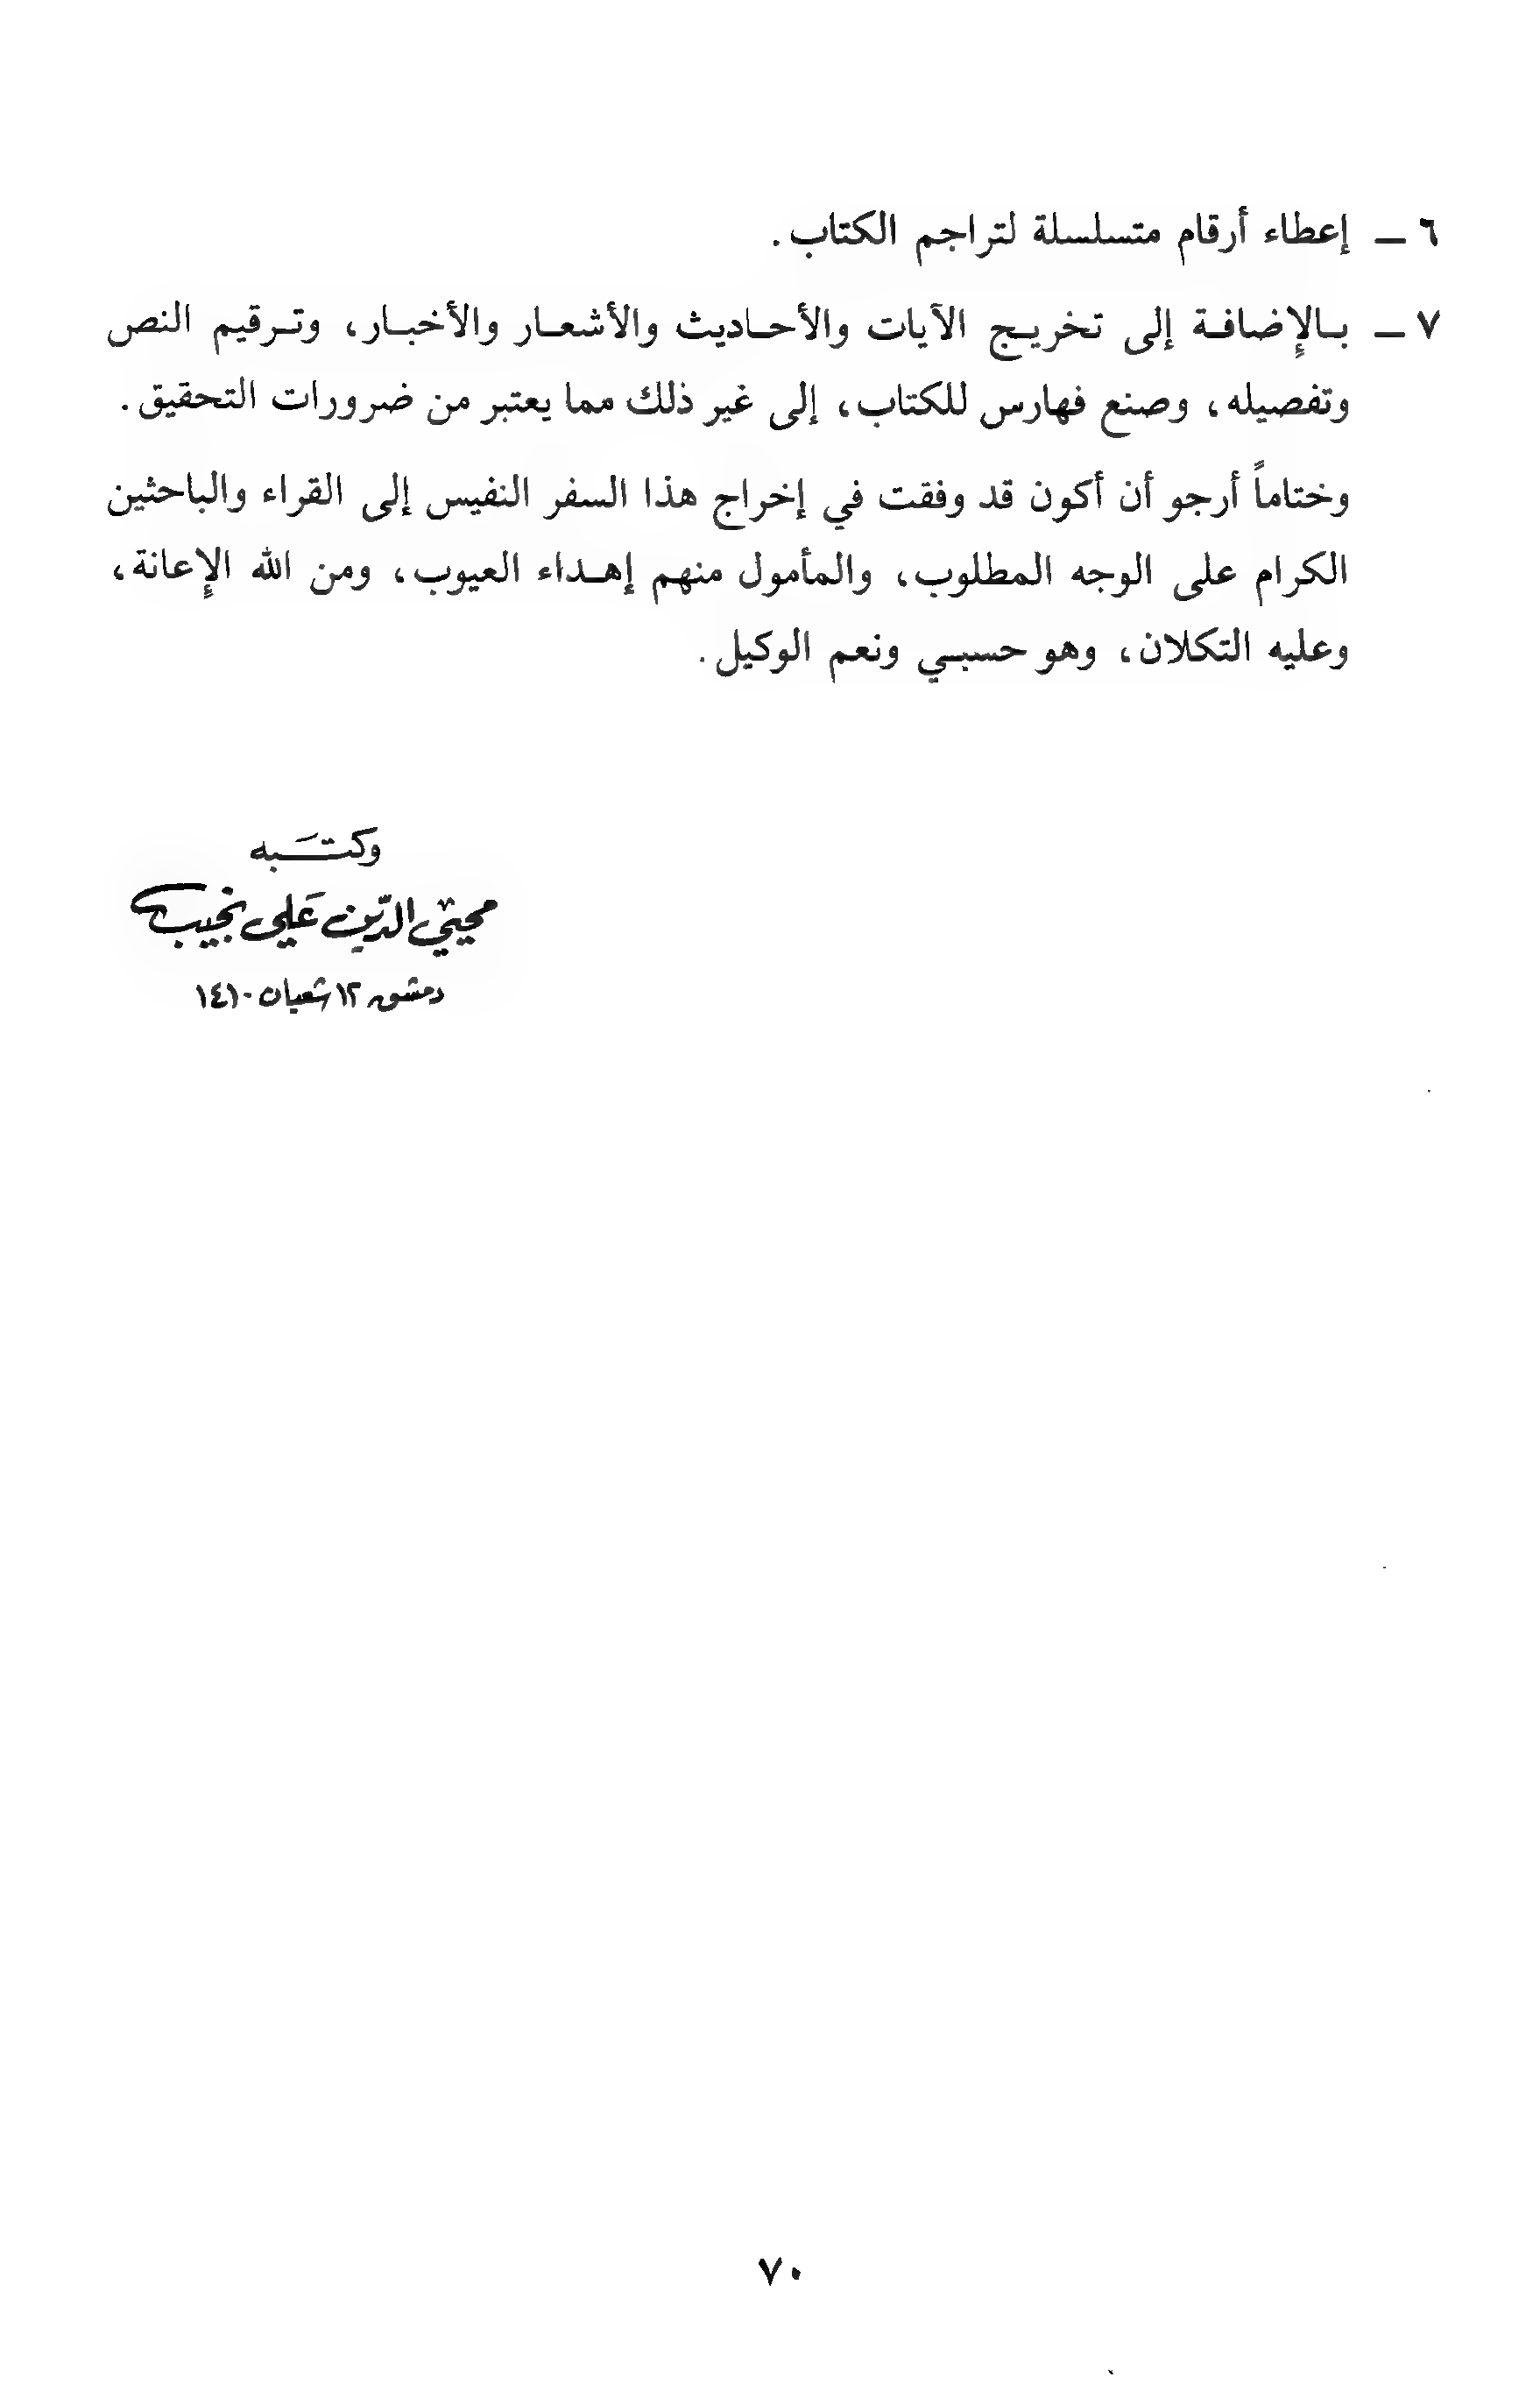 ٦ ـ إعطاء أرقام متسلسلة لتراجم الكتاب.
٧ ـ بالإضافة إلى تخريج الآيات والأحاديث والأشعار والأخبار، وترقيم النص
وتفصيله، وصنع فهارس للكتاب، إلى غير ذلك مما يعتبر من ضرورات التحقيق.
وختاماً أرجو أن أكون قد وفقت في إخراج هذا السفر النفيس إلى القراء والباحثين
الكرام على الوجه المطلوب، والمأمول منهم إهداء العيوب، ومن الله الإعانة،
وعليه التكلان، وهو حسبي ونعم الوكيل.
وكتَبه
محيي الدّين عَلي نجيب
دمشق ١٢ شعبان ١٤١٠
٧٠